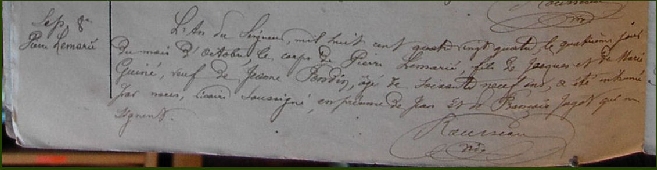 Rousseau
Sep. 8e
Pierre Lemarié
L'An du Seigneur, mil huit cent quatre vingt quatre, le quatrième jour
du mois d'octobre, le corps de Pierre Lemarié, fils de Jacques et de Marie
Guiné, veuf de Jeanne, âgé de soixante neuf ans, a été inhumé
par nous, vicaire soussigné, en présence de Jean et de François Jagot qui ne
signent.
Rousseau
Vic